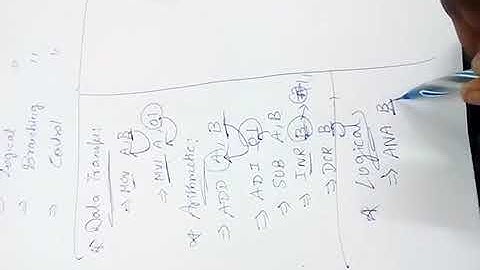 ⇒ Logical "
⇒ Branching "
⇒ Control "
* Data Transfer:
⇒ MOV A, B
⇒ MVI A, 01
* Arithmetic:
⇒ ADD A, B
⇒ ADI 01
⇒ SUB A, B
⇒ INR B
⇒ DCR B
* Logical
⇒ ANA B